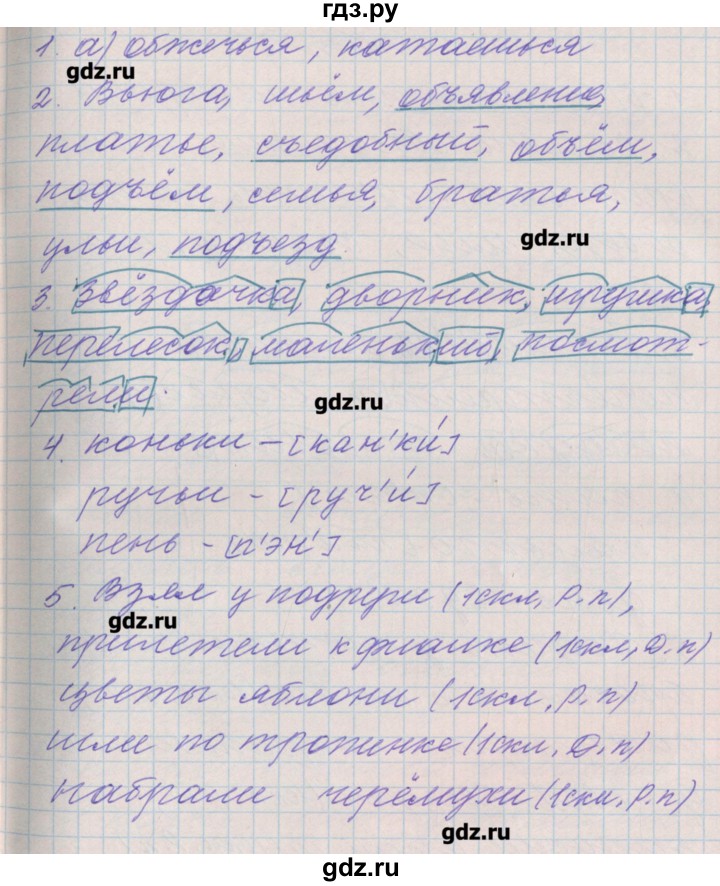 гдз.ру
1. а) обжечься, катаешься
gdz.ru
2. Вьюга, шьём, объявление,
платье, съедобный, объём,
подъём, семья, братья,
ульи, подъезд
gdz.ru
3. Звёздочка, дворник, игрушка,
перелесок, маленький, посмот-
рели.
gdz.ru
4. коньки – [кан'к'и́]
ручьи – [руч'и́]
пень – [п'эн']
5. Взял у подруги (1скл, Р.п),
gdz.ru
прилетели к фиалке (1скл, Д.п)
цветы яблони (1скл, Р.п)
шли по тропинке (1скл, Д.п)
набрали черёмухи (1скл, Р.п)
gdz.ru
gdz.ru